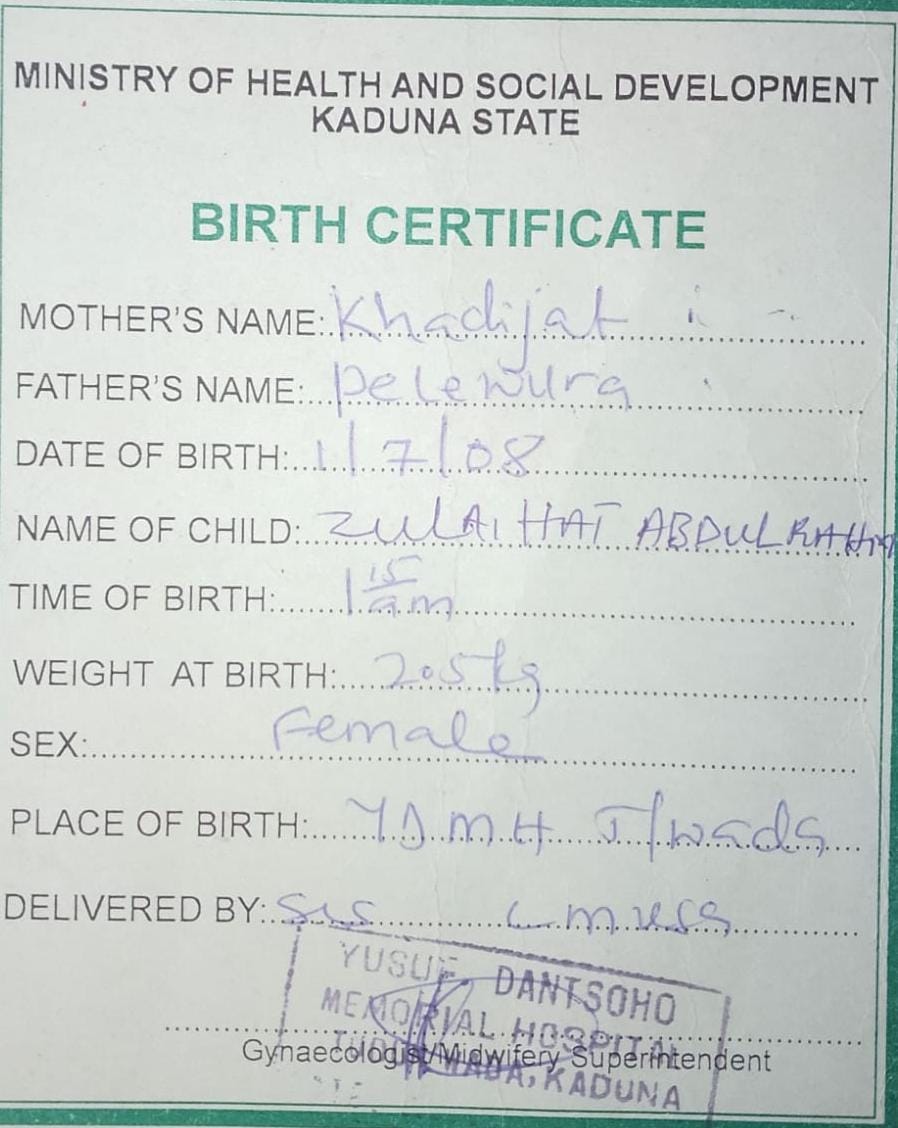 MINISTRY OF HEALTH AND SOCIAL DEVELOPMENT
KADUNA STATE
BIRTH CERTIFICATE
MOTHER'S NAME: Khadijat
FATHER'S NAME: Pelewura
DATE OF BIRTH: 1/7/08
NAME OF CHILD: ZULAIHAT ABDULRAHM
TIME OF BIRTH: 1 15/am
WEIGHT AT BIRTH: 2.5kg
SEX: Female
PLACE OF BIRTH: YDMH T/wada
DELIVERED BY: Sis
YUSUF DANTSOHO
MEMORIAL HOSPITAL
Gynaecologist/Midwifery Superintendent
WADA, KADUNA